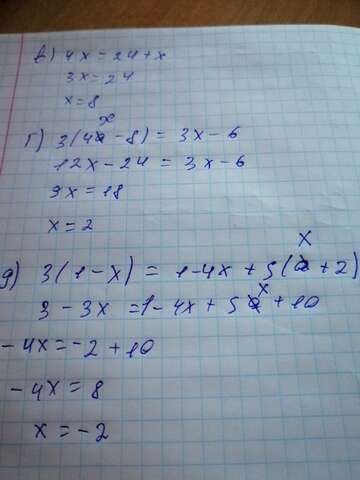 в) 4x = 24 + x
3x = 24
x = 8
г) 3(4x - 8) = 3x - 6
12x - 24 = 3x - 6
9x = 18
x = 2
д) 3(1 - x) = 1 - 4x + 5(x + 2)
3 - 3x = 1 - 4x + 5x + 10
- 4x = -2 + 10
- 4x = 8
x = -2